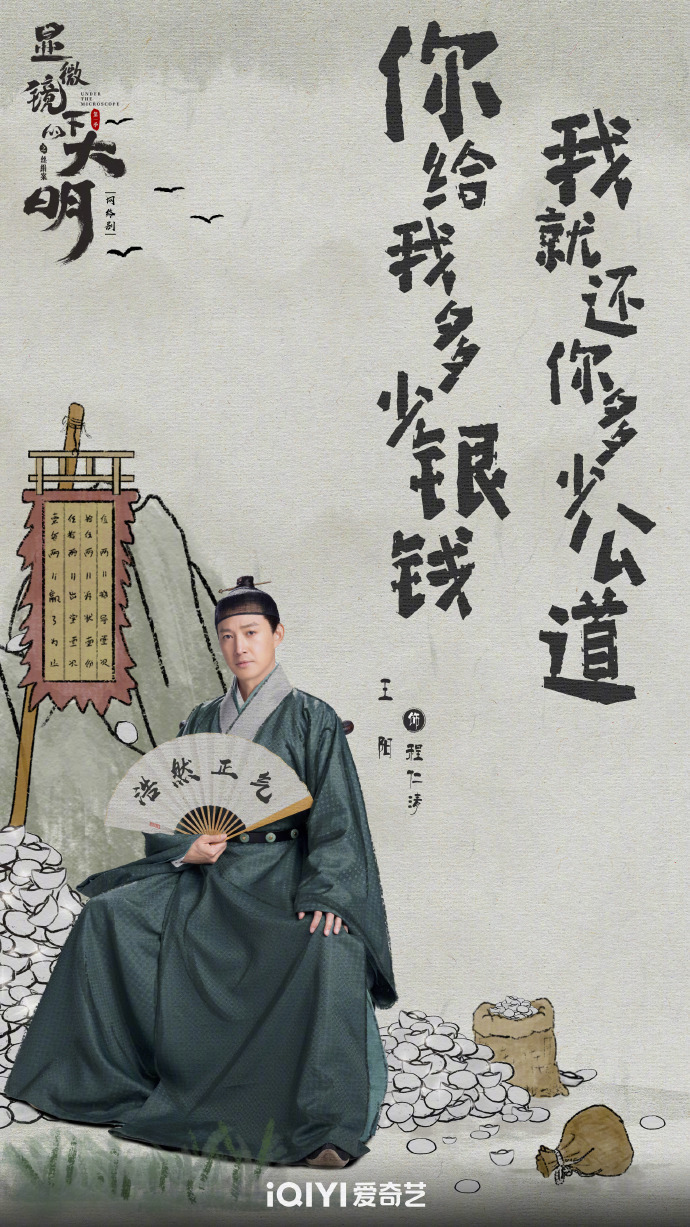 显微镜下
UNDER
THE
MICROSCOPE
大明
之丝绢案
网络剧
你给我多少银钱
我就还你多少公道
王阳
饰
程仁清
浩然正气
iQIYI 爱奇艺